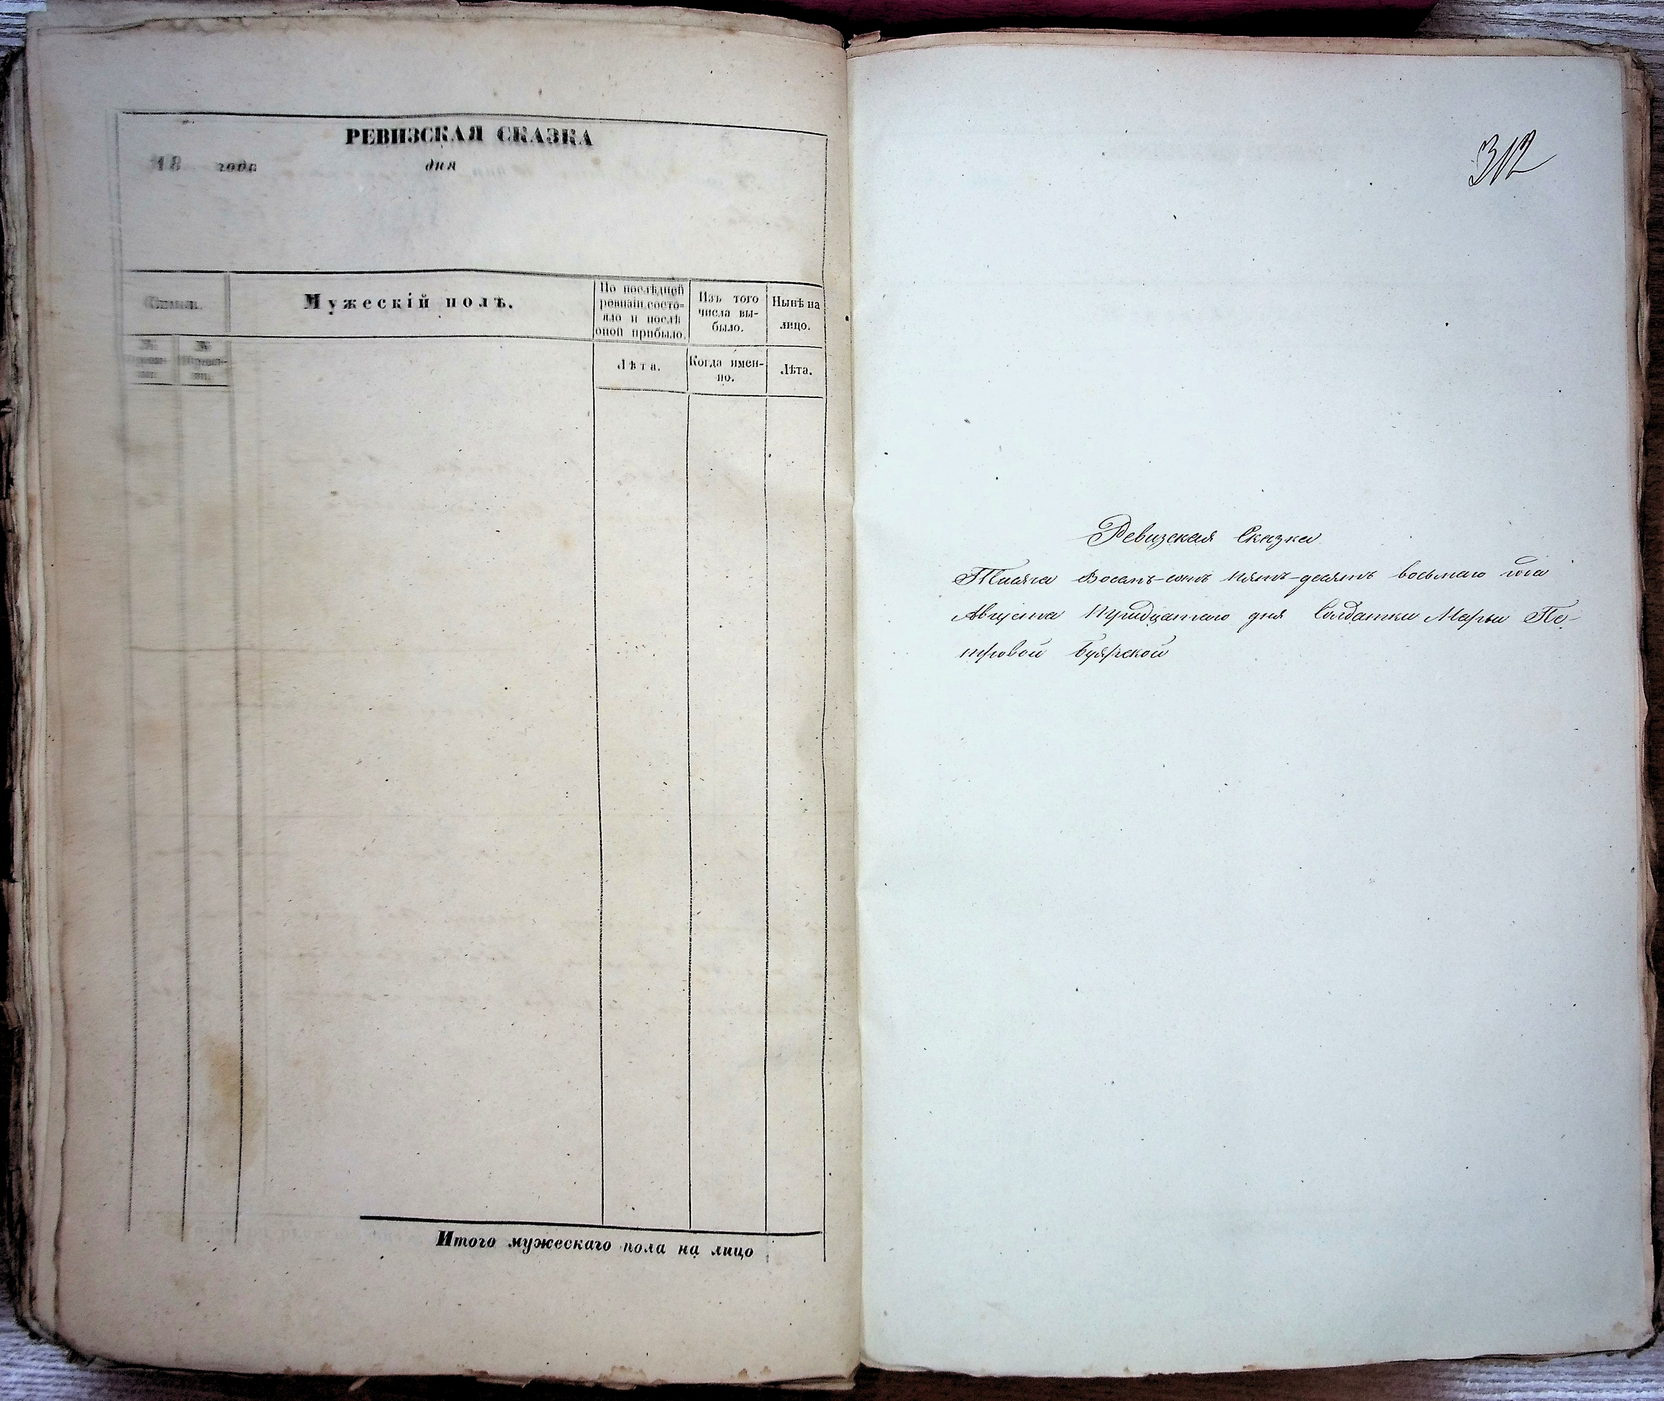 РЕВИЗСКАЯ СКАЗКА
18 года дня
Семьи.
Мужескій полъ.
По послѣдней
ревизіи состо-
яло и послѣ
оной прибыло.
Изъ того
числа вы-
было.
Нынѣ на
лицо.
№
№
Лѣта.
Когда имен-
но.
Лѣта.
Итого мужескаго пола на лицо
312
Ревизская Сказка
Тысяча Восемь-сотъ пять-десятъ восьмаго года
Августа Тридцатаго дня Солдатки Марьи Пе-
тровой Буярской